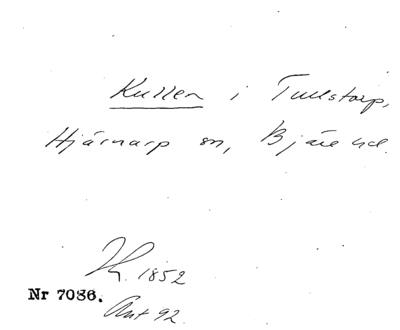 Kullen i Tullstorp,
Hjärnarp sn, Bjäre hd.
K. 1852
Nr 7086.
Ant 92